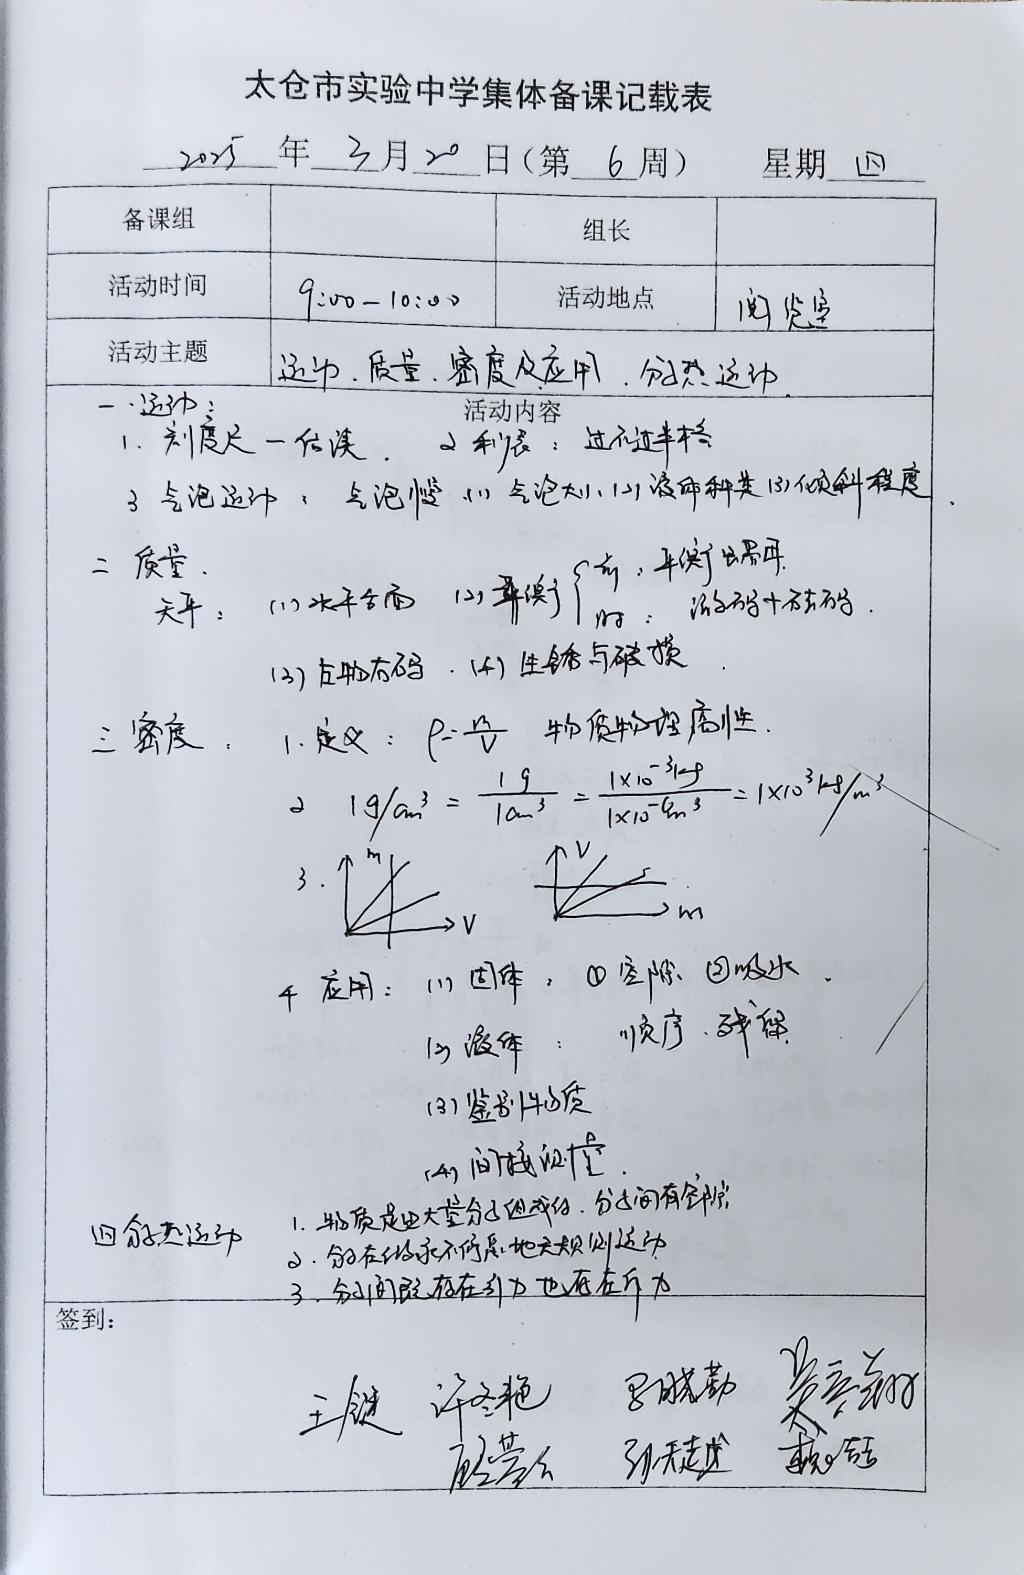 太仓市实验中学集体备课记载表
2025 年 3 月 20 日(第 6 周) 星期 四
备课组 组长
活动时间 9:00-10:00 活动地点 阅览室
活动主题 运动、质量、密度及应用、分子热运动
活动内容
一、运动:
1. 刻度尺 — 估读. 2 秒表: 过不过半格
3 气泡运动: 气泡 (1) 气泡大小 (2) 液体种类 (3) 倾斜程度.
二 质量.
天平: (1) 水平台面 (2) 平衡 { 前: 平衡螺母
时: 游码+砝码.
(3) 左物右码. (4) 生锈与破损.
三 密度: 1. 定义: ρ=m/V 物质物理属性.
2 1g/cm³ = 1g/1cm³ = 1×10⁻³kg/1×10⁻⁶m³ = 1×10³kg/m³
3. m V V m
4 应用: (1) 固体: ① 空隙 ② 吸水.
(2) 液体: 顺序、残留
(3) 鉴别物质
(4) 间接测量.
四 分子热运动 1. 物质是由大量分子组成的、分子间有空隙
2. 分子在永不停息地无规则运动
3. 分子间既存在引力也存在斥力
签到:
王健 许冬艳